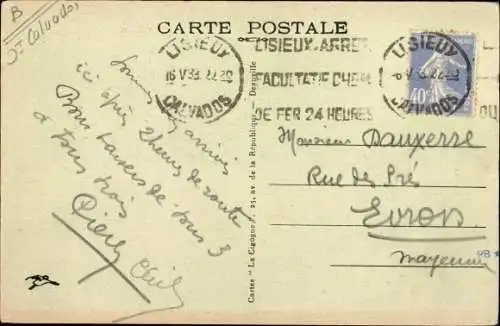 B
Calvados
CARTE POSTALE
LISIEUX
16 V 33 22 20
CALVADOS
LISIEUX-ARRET
FACULTATIF CHEM
DE FER 24 HEURES
LISIEUX
CALVADOS
40
Sommes arrivés
ici après 2 heures de route
Bons baisers de tous 3
à tous trois
Monsieur Dauxerre
Rue des Prés
Evron
Mayenne
Cartes "La Cigogne", 21, av. de la République -